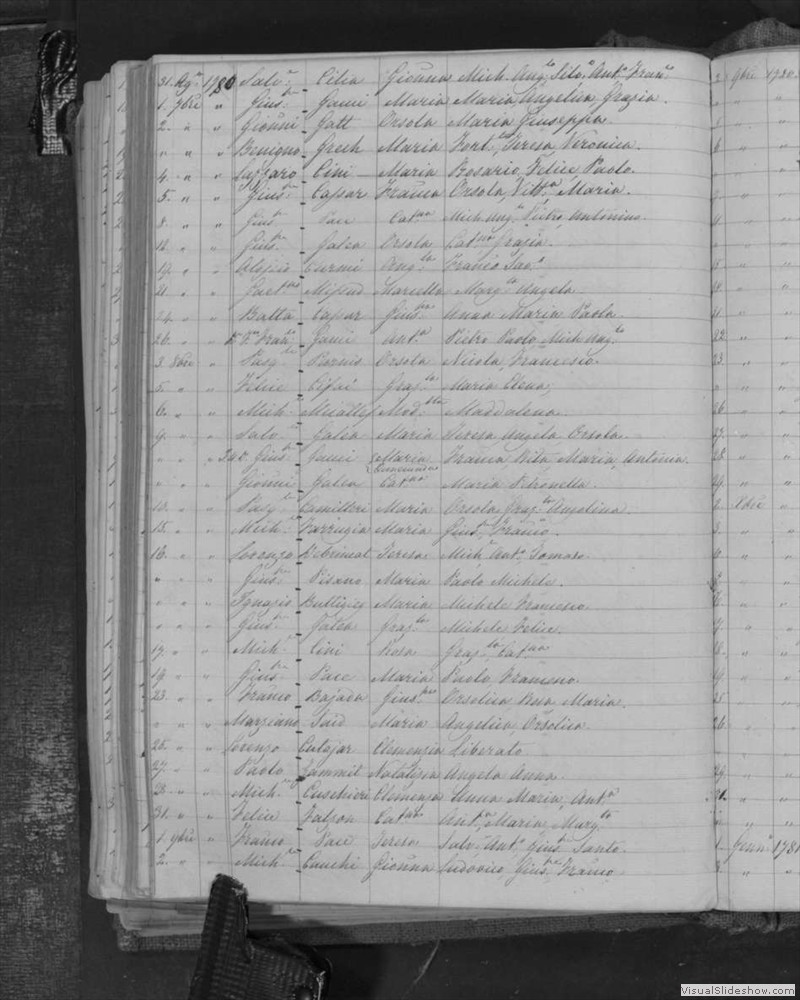 31. Ag.º 1780 Salv.r Cilia Gioũna Mich. Ang.lo Silv.º Ant.º Fran.º
1. 7bre " Gius.e Gauci Maria Maria Angelica Grazia.
2. " " Gioũni Gatt Orsola Maria Giuseppa
" " " Benigno Grech Maria Fort.ta Teresa Veronica.
4. " " Lazzaro Cini Maria Rosario, Felice Paolo.
5. " " Gius.e Cassar Franca Orsola, Vitt.a Maria.
8. " " Gius.e Pace Cat.na Mich. Ang.lo Pietro Antonino
" " Gius.e Galea Orsola Cat.na Grazia.
19. " " Aloisio Curmi Ang.la Franco Sav.º
" " Gaet.no Mifsud Marcella Marg.ta Angela
24. " " Batta Cassar Gius.pa Anna Maria Paola.
26. " " Fran.co Gauci Ant.a Pietro Paolo Mich. Ang.lo
3. 8bre " Pasq.le Burnio Orsola Nicola, Francesco.
5. " " Felice Graz.la Maria Elena,
6. " " Mich.e Micallef Mod.sta Maddalena.
9. " " Salv.r Galea Maria Teresa Angela Orsola.
" " Gius.e Gauci Maria Franca, Rita, Maria, Antonia.
" " Gioũni Galea Cat.na Maria Petronella.
10. " " Pasq.le Camilleri Maria Orsola, Graz.la Angelina.
15. " " Mich.e Farrugia Maria Gius.e Franco.
16. " " Lorenzo Debrincat Teresa Mich. Ant.º Tomaso.
" " " Gius.e Pisano Maria Paolo Michele.
" " " Ignazio Buttigieg Maria Michele Francesco.
" " " Gius.e Galea Graz.la Michele Felice.
17. " " Mich.e Cini Rosa Graz.la Cat.na
19. " " Gius.e Pace Maria Paolo Francesco.
23. " " Franco Bajada Gius.pa Orsolica Rosa Maria.
" " " Marzeano Said Maria Angelica, Orsolica.
25. " " Lorenzo Cutajar Clemenza Liberato
27. " " Paolo Zammit Natalizia Angela Anna
28. " " Mich.e Cuschieri Clemenza Anna Maria, Ant.a
31. " " Felice Falzon Cat.na Ant.a, Maria, Marg.ta
1. 9bre " Franco Pace Teresa Salv.r Ant.º Gius.e Santo
2. " " Mich.e Cauchi Gioũna Ludovico, Gius.e Franco.
2 9bre 1780.
Xbre
Genn.º 1781